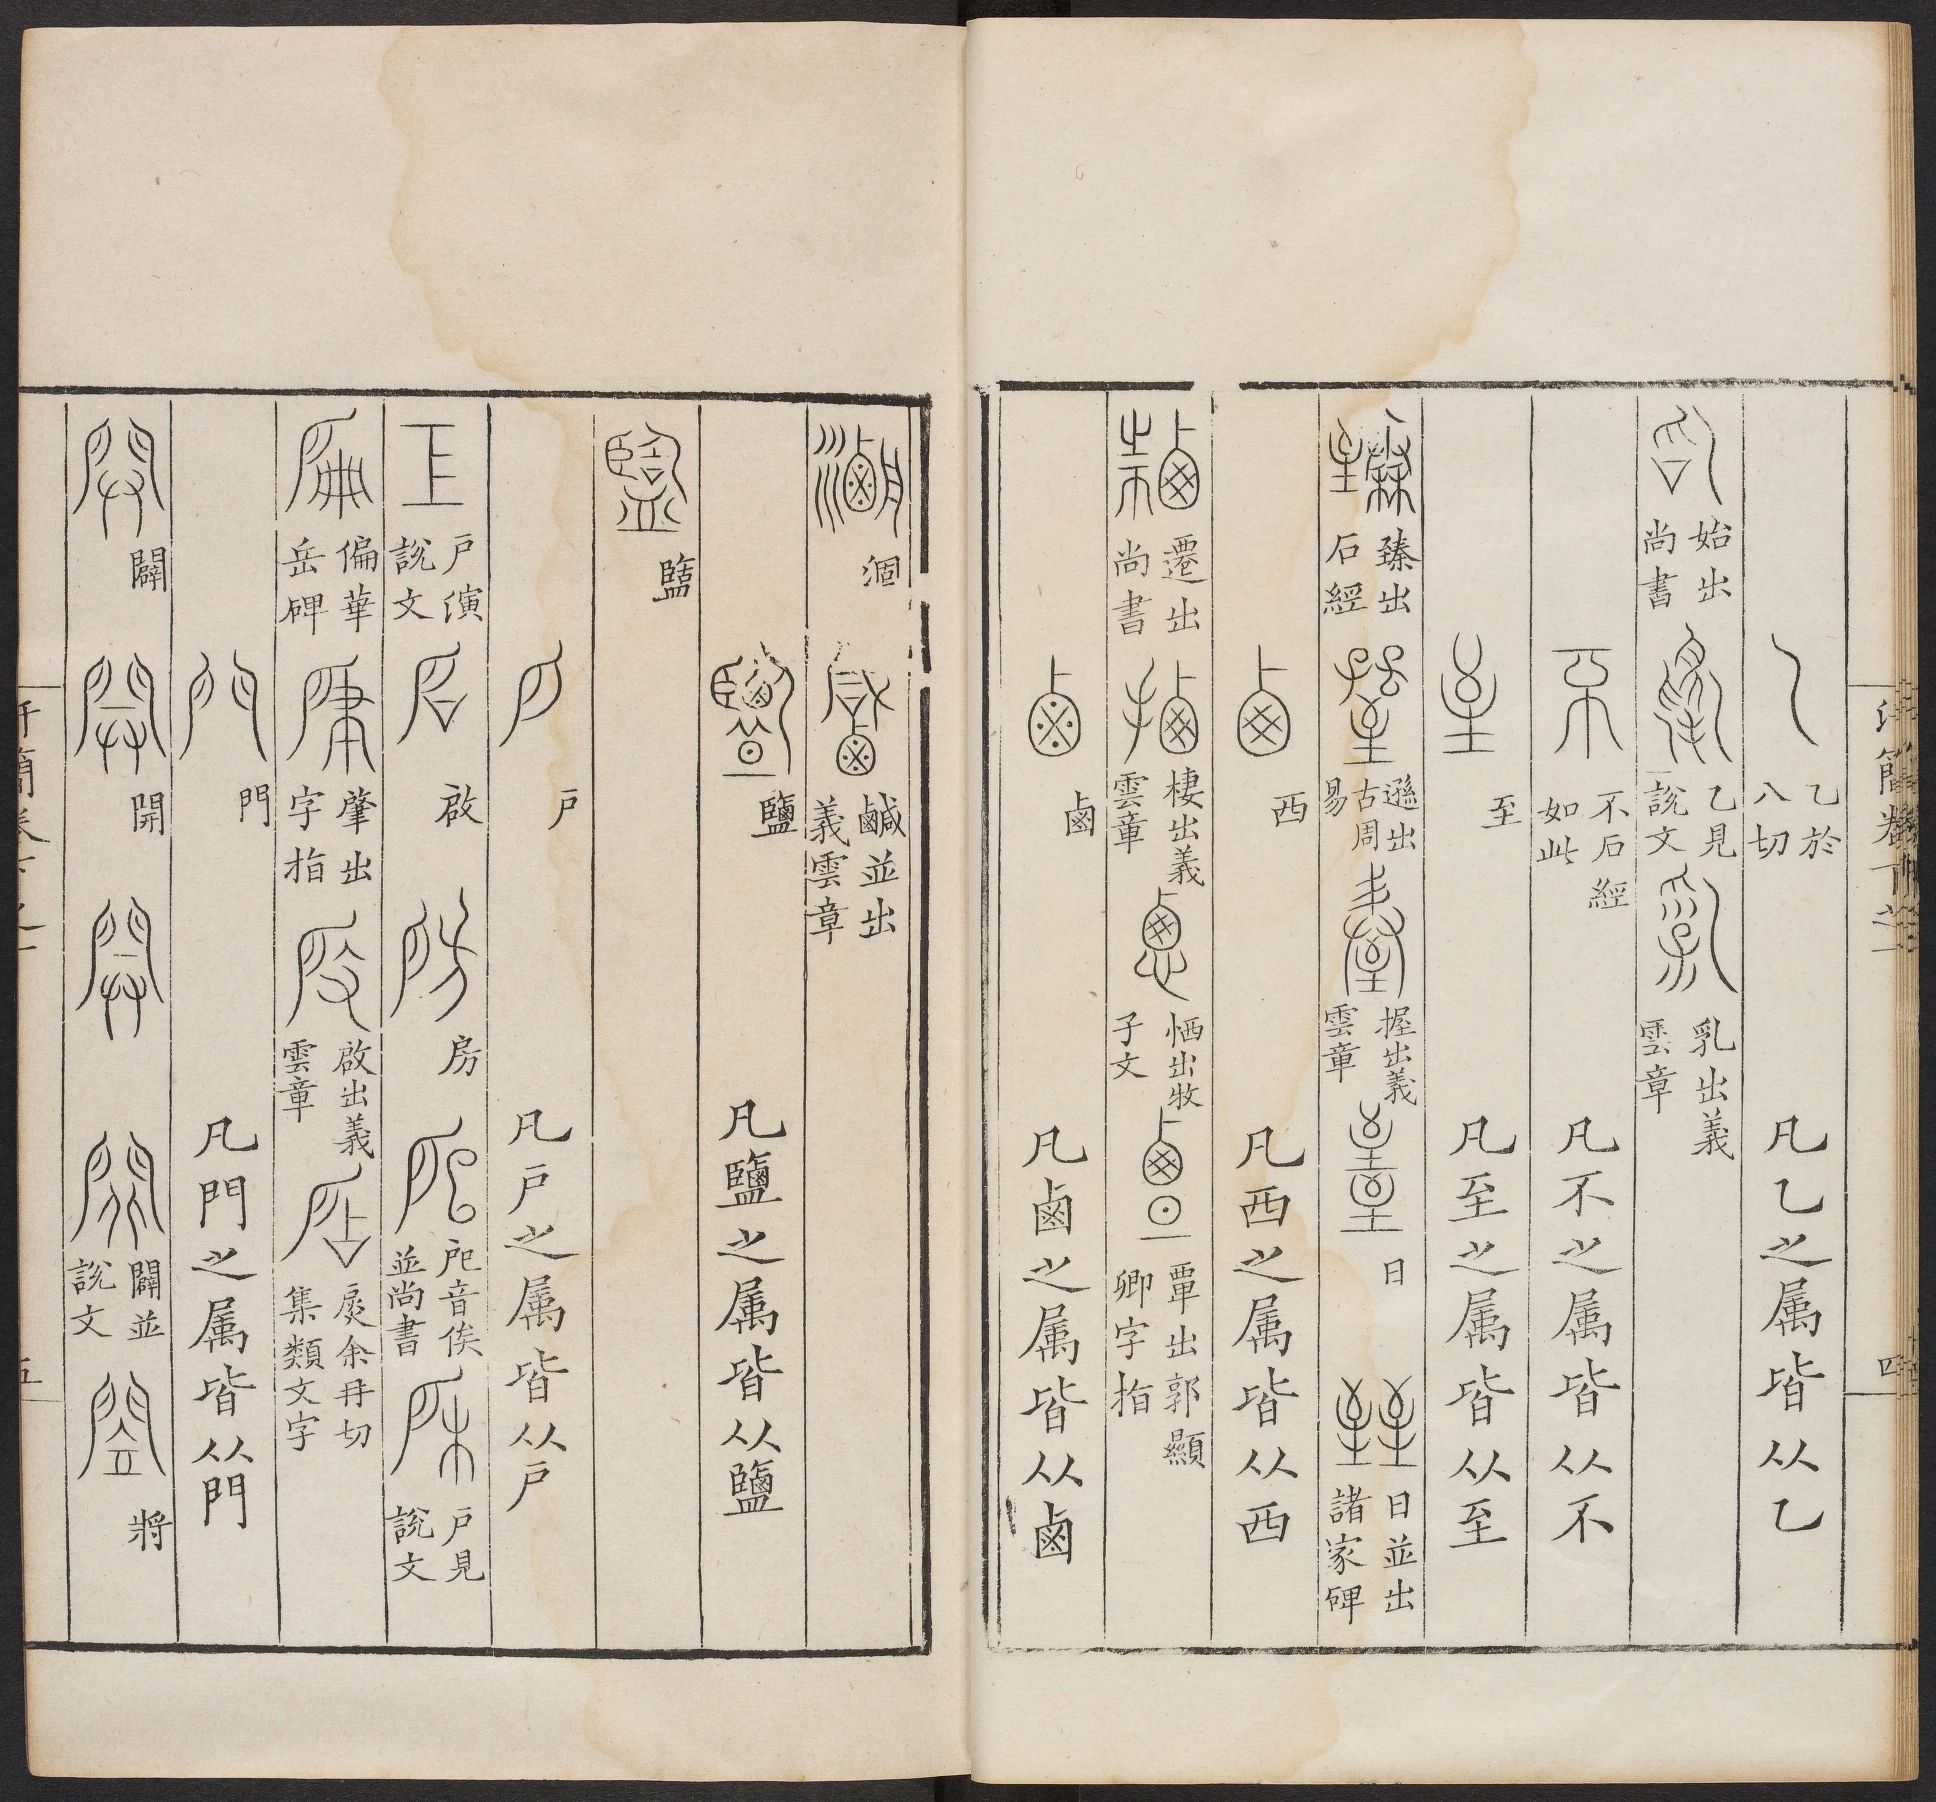 乙於八切 凡乙之属皆从乙
始出尚書 乙見說文 乳出義雲章
不石經如此 凡不之属皆从不
至 凡至之属皆从至
臻出石經 遜出古周易 握出義雲章 日 日並出諸家碑
西 凡西之属皆从西
遷出尚書 棲出義雲章 恓出牧子文 覃出郭顯卿字指
鹵 凡鹵之属皆从鹵
涸 鹹並出義雲章
鹽 凡鹽之属皆从鹽
盬
戶 凡戶之属皆从戶
戶演說文 啟 房 戺音俟並尚書 戶見說文
偏華岳碑 肇出字指 啟出義雲章 扊余冉切集類文字
門 凡門之属皆从門
闢 開 闢並說文 將
汗簡卷下之一
四
五